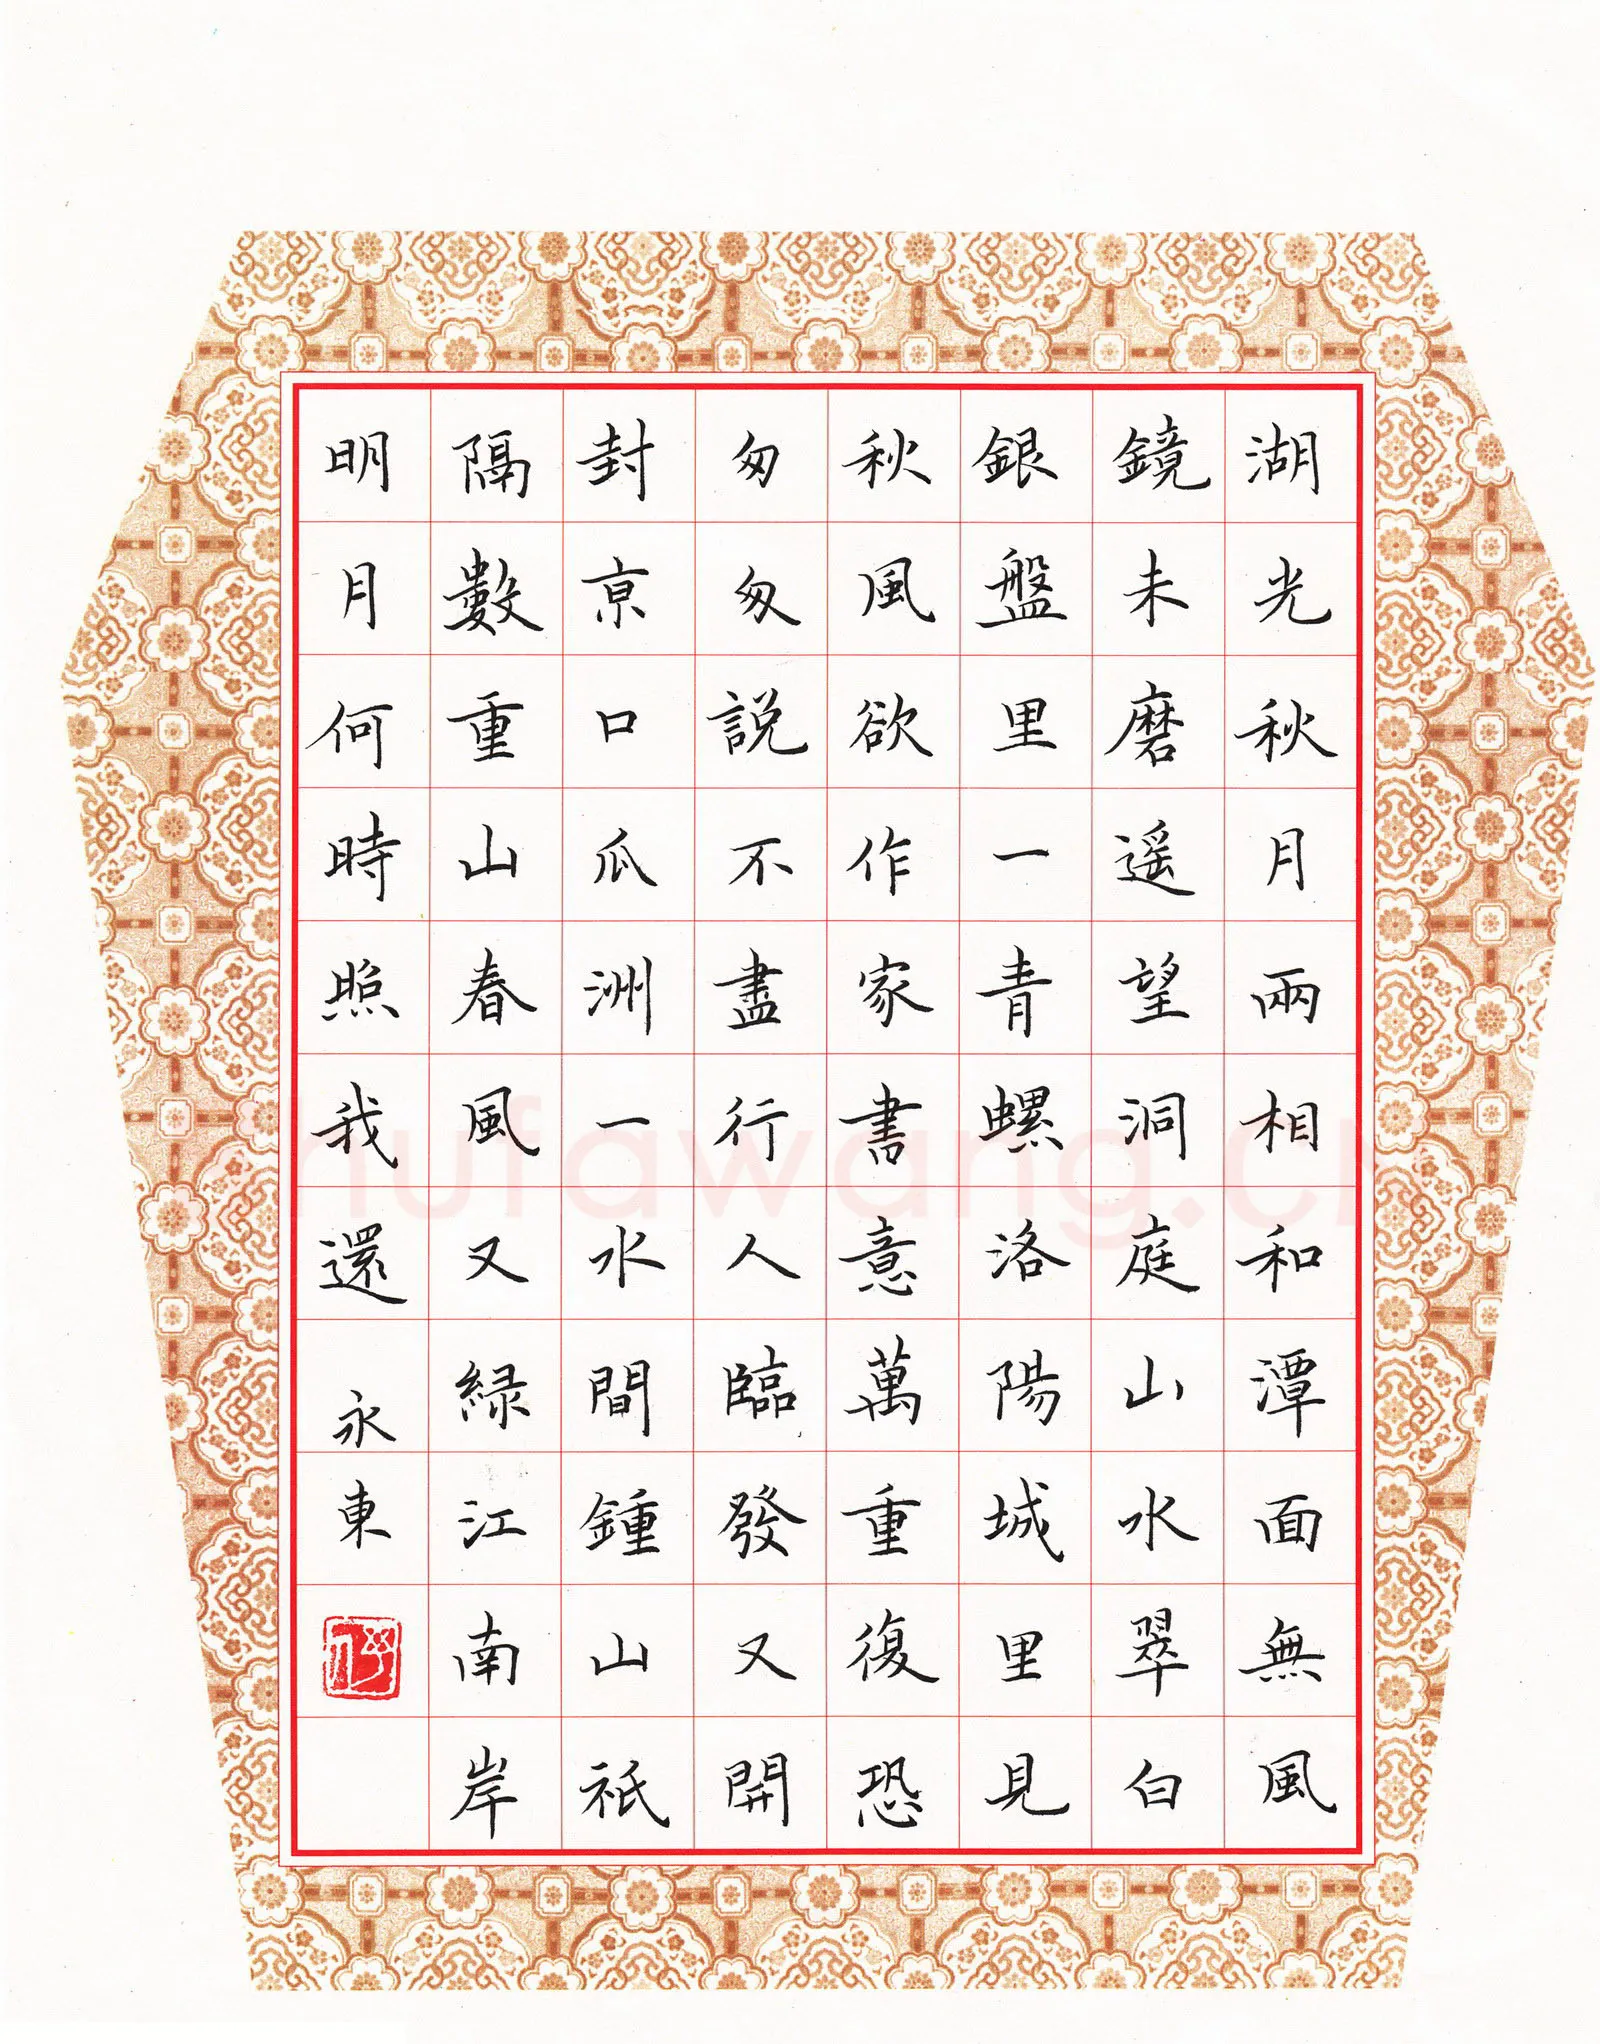 湖光秋月兩相和潭面無風
鏡未磨遥望洞庭山水翠白
銀盤里一青螺洛陽城里見
秋風欲作家書意萬重復恐
匆匆説不盡行人臨發又開
封亰口瓜洲一水間鍾山祇
隔數重山春風又緑江南岸
明月何時照我還 永東
hufawang.cn